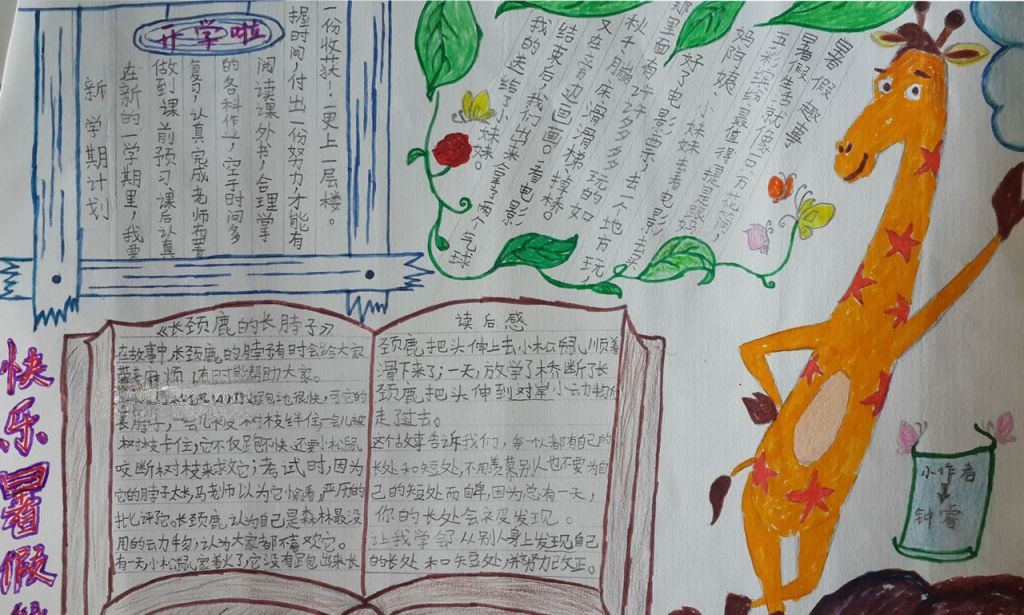 开学啦
新学期计划
在新的一学期里，我要
做到课前预习课后认真
复习，认真完成老师布置
的各科作业，空于时间多
阅读课外书，合理掌
握时间，付出一份努力才能有
一份收获！更上一层楼。
暑假趣事
暑假生活就像一只万花筒，
五彩缤纷最值得提是
妈阿姨、小妹妹去看电影
好了电影票，去
那里面有
秋千、蹦蹦床、滑滑梯、
又在旁边画画。看电影
结束后，我们出来拿了两个气球
我的送给了小妹妹。
《长颈鹿的长脖子》
在故事中，长颈鹿的脖子有时会给大家
带来麻烦，有时能帮助大家。
跑地很快，可它的
长脖子，一会儿被树枝绊住一会儿被
树枝卡住，它不仅跑不快，还要小松鼠
咬断树枝来救它；考试时，因为
它的脖子太长，马老师以为它偷看，严厉的
批评它。长颈鹿认为自己是森林最没
用的动物，认为大家都不喜欢它。
有一天小松鼠家着火了，它没有跑出来长
读后感
颈鹿把头伸上去小松鼠顺着
滑下来了；一天，放学了木桥断了长
颈鹿把头伸到对岸小动物们
走了过去。
这个故事告诉我们，每一人都有自己的
长处和短处，不用羡慕别人也不要为自
己的短处而自卑，因为总有一天，
你的长处会被发现。
让我学会了从别人身上发现自己
的长处和短处，并努力改正。
快乐暑假
小作者
钟睿